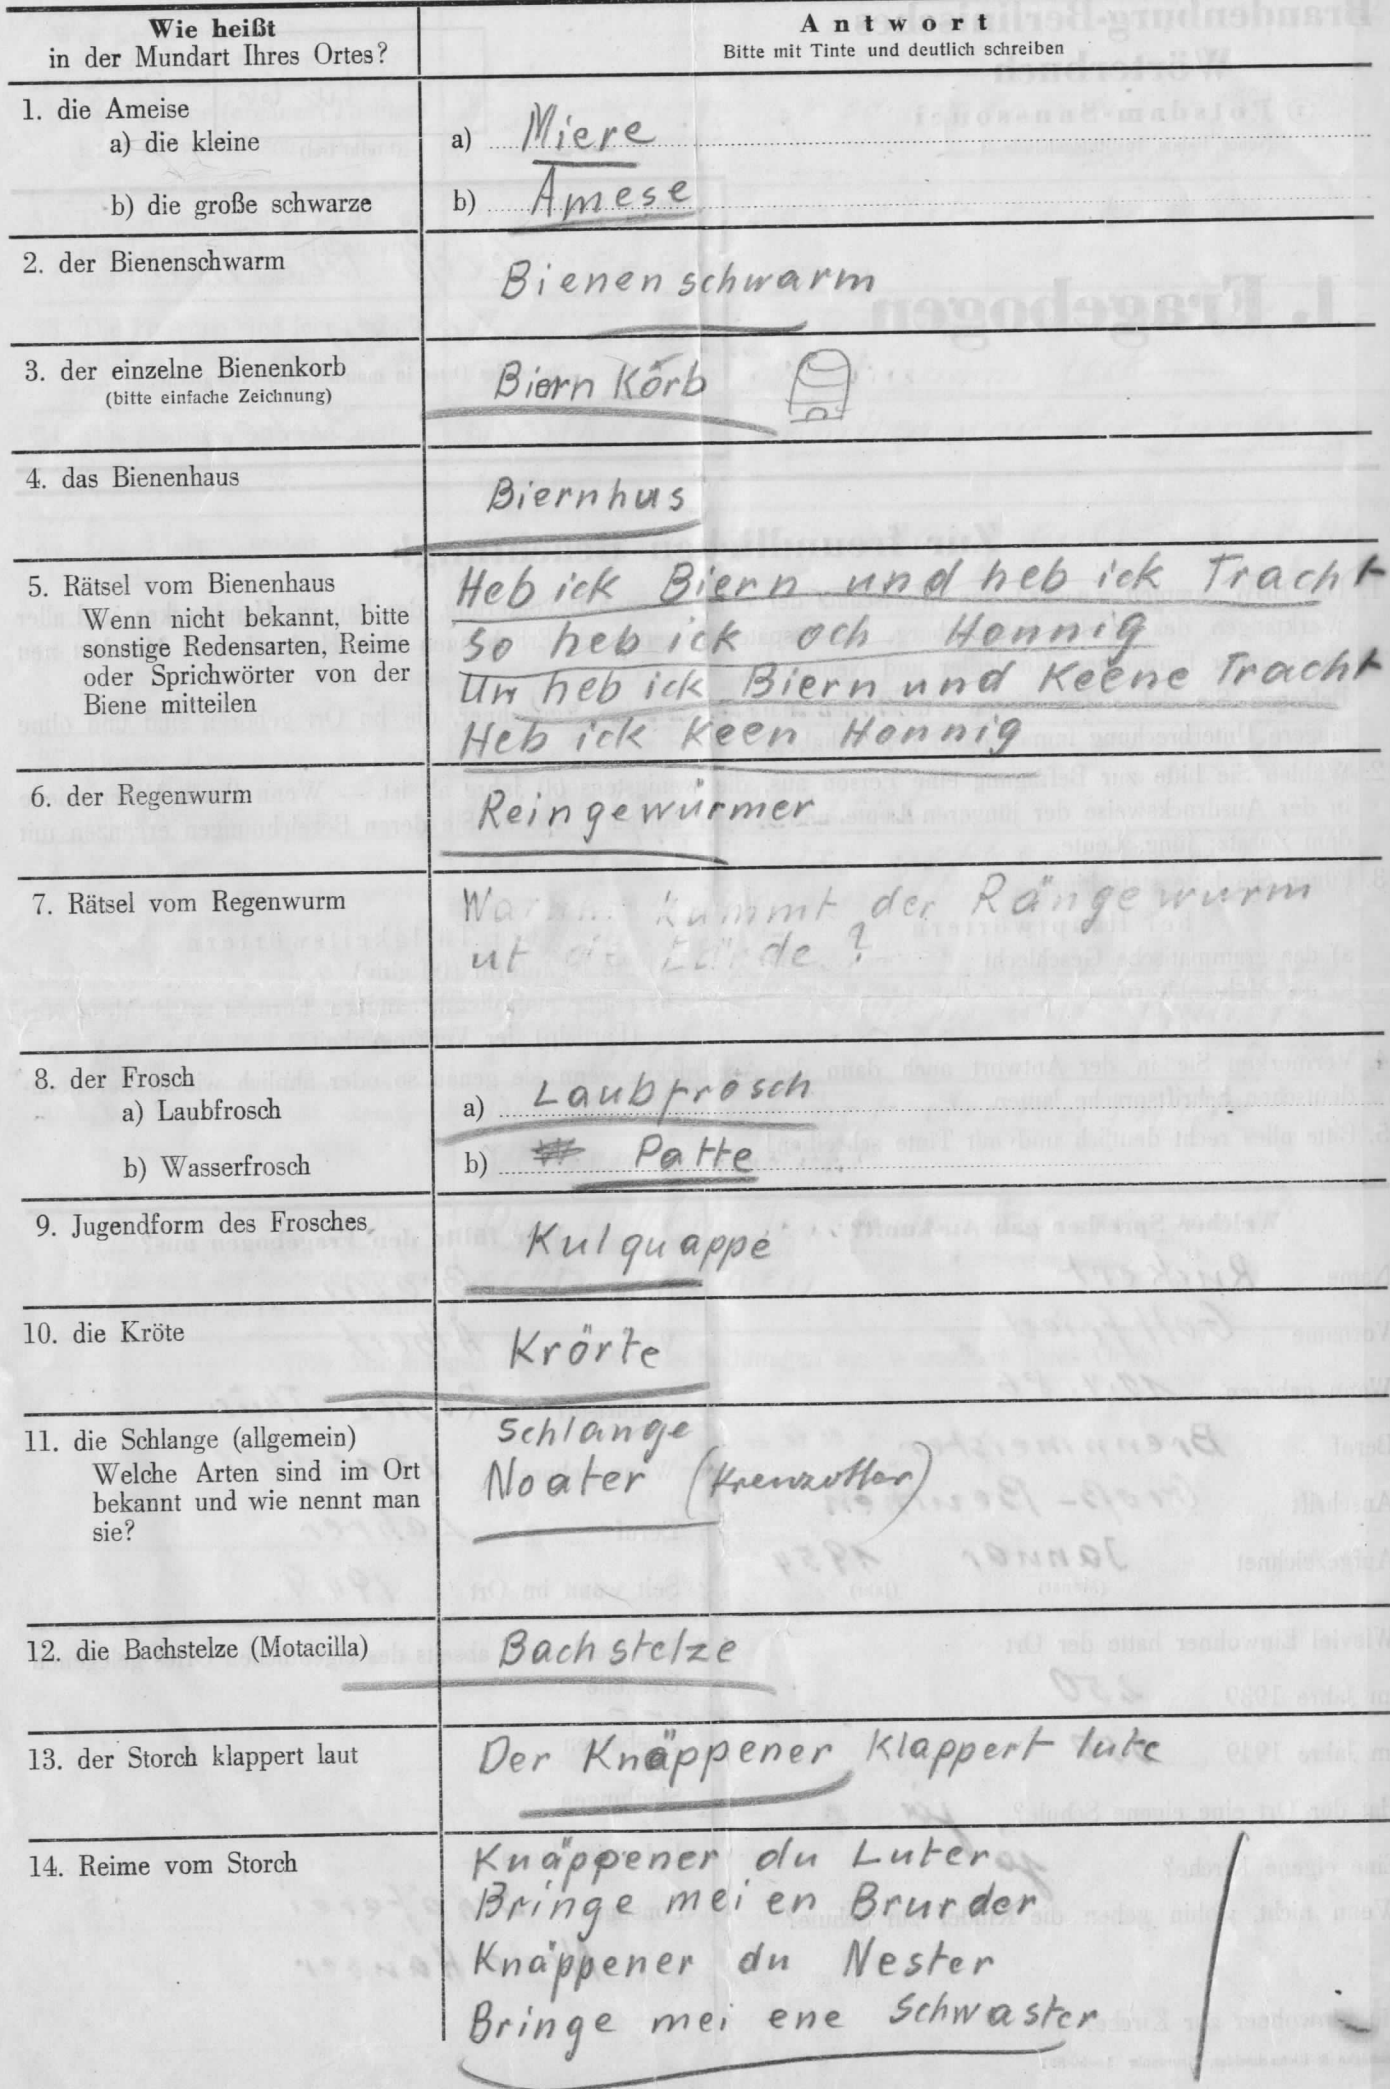 Wie heißt
in der Mundart Ihres Ortes?
Antwort
Bitte mit Tinte und deutlich schreiben
1. die Ameise
a) die kleine
a) Miere
b) die große schwarze
b) Amese
2. der Bienenschwarm
Bienenschwarm
3. der einzelne Bienenkorb
(bitte einfache Zeichnung)
Biern Körb
4. das Bienenhaus
Biernhus
5. Rätsel vom Bienenhaus
Wenn nicht bekannt, bitte
sonstige Redensarten, Reime
oder Sprichwörter von der
Biene mitteilen
Heb ick Biern und heb ick Tracht
so heb ick och Honnig
Un heb ick Biern und Keene Tracht
Heb ick Keen Honnig
6. der Regenwurm
Reingewürmer
7. Rätsel vom Regenwurm
kummt der Rängewurm
ut
8. der Frosch
a) Laubfrosch
a) Laubfrosch
b) Wasserfrosch
b) Patte
9. Jugendform des Frosches
Kulquappe
10. die Kröte
Krörte
11. die Schlange (allgemein)
Welche Arten sind im Ort
bekannt und wie nennt man
sie?
Schlange
Noater (Kreuzotter)
12. die Bachstelze (Motacilla)
Bachstelze
13. der Storch klappert laut
Der Knäppener Klappert lute
14. Reime vom Storch
Knäppener du Luter
Bringe mei en Brurder
Knäppener du Nester
Bringe mei ene Schwaster